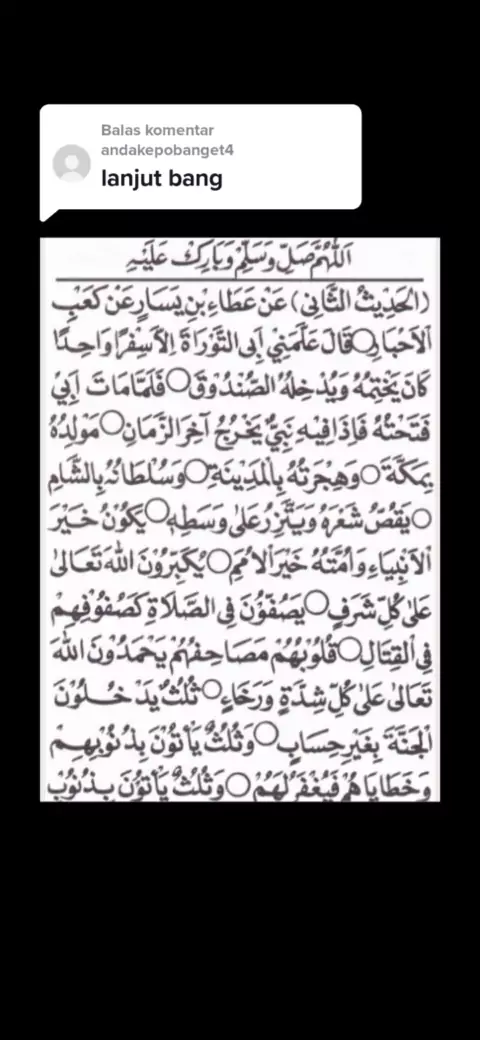 Balas komentar
andakepobanget4
lanjut bang
اَللّٰهُمَّ صَلِّ وَسَلِّمْ وَبَارِكْ عَلَيْهِ
(اَلْحَدِيْثُ الثَّانِى) عَنْ عَطَاءِ بْنِ يَسَارٍ عَنْ كَعْبِ
الْاَحْبَارِ○قَالَ عَلَّمَنِيْ اَبِى التَّوْرَاةَ اِلَّا سِفْرًا وَاحِدًا
كَانَ يَخْتِمُهُ وَيُدْخِلُهُ الصُّنْدُوْقَ○فَلَمَّا مَاتَ اَبِيْ
فَتَحْتُهُ فَاِذَا فِيْهِ نَبِيٌّ يَخْرُجُ آخِرَ الزَّمَانِ○مَوْلِدُهُ
بِمَكَّةَ○وَهِجْرَتُهُ بِالْمَدِيْنَةِ○وَسُلْطَانُهُ بِالشَّامِ
○يَقُصُّ شَعْرَهُ وَيَتَّزِرُ عَلٰى وَسَطِهِ○يَكُوْنُ خَيْرَ
الْاَنْبِيَاءِ وَاُمَّتُهُ خَيْرَ الْاُمَمِ○يُكَبِّرُوْنَ اللهَ تَعَالٰى
عَلٰى كُلِّ شَرَفٍ○يَصُفُّوْنَ فِى الصَّلَاةِ كَصُفُوْفِهِمْ
فِى الْقِتَالِ○قُلُوْبُهُمْ مَصَاحِفُهُمْ يَحْمَدُوْنَ اللهَ
تَعَالٰى عَلٰى كُلِّ شِدَّةٍ وَرَخَاءٍ○ثُلُثٌ يَدْخُلُوْنَ
الْجَنَّةَ بِغَيْرِ حِسَابٍ○وَثُلُثٌ يَأْتُوْنَ بِذُنُوْبِهِمْ
وَخَطَايَاهُمْ فَيُغْفَرُ لَهُمْ○وَثُلُثٌ يَأْتُوْنَ بِذُنُوْبٍ